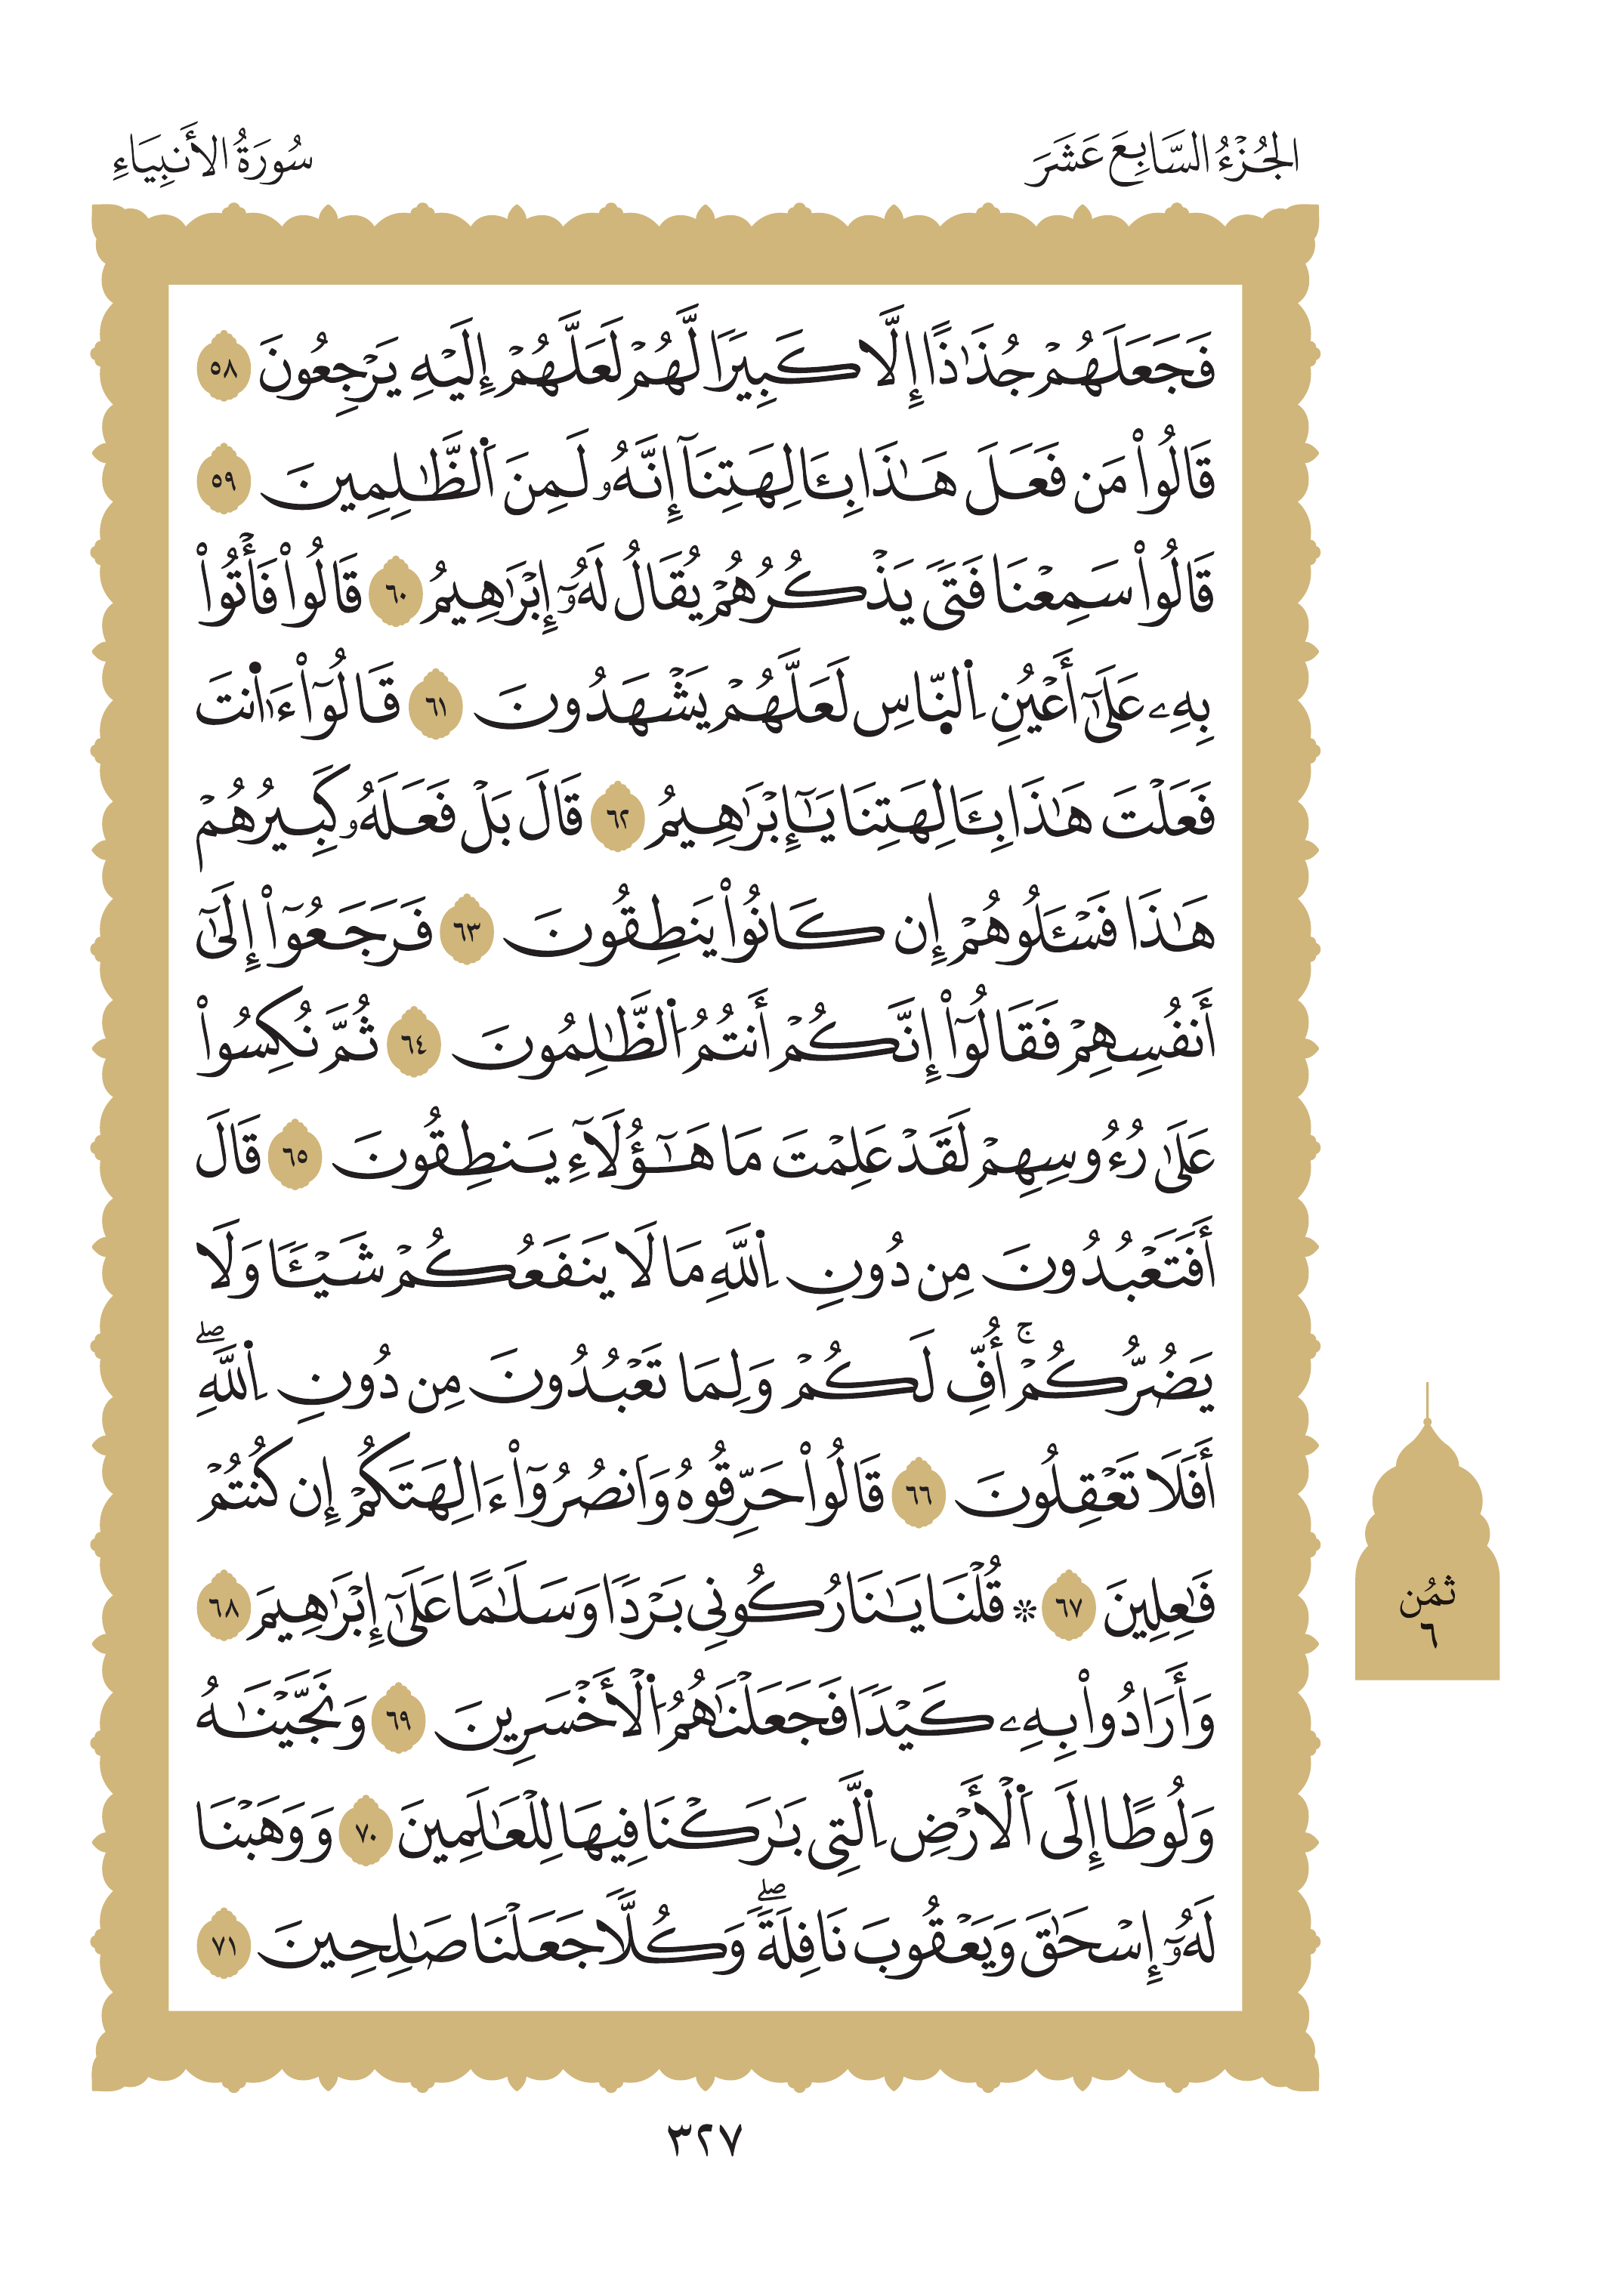 الجُزْءُ السَّابِعَ عَشَرَ
سُورَةُ الأَنبِيَاءِ
فَجَعَلَهُمْ جُذَٰذًا إِلَّا كَبِيرٗا لَّهُمْ لَعَلَّهُمْ إِلَيْهِ يَرْجِعُونَ ٥٨
قَالُواْ مَن فَعَلَ هَٰذَا بِـَٔالِهَتِنَآ إِنَّهُۥ لَمِنَ اَ۬لظَّٰلِمِينَ ٥٩
قَالُواْ سَمِعْنَا فَتٗى يَذْكُرُهُمْ يُقَالُ لَهُۥٓ إِبْرَٰهِيمُ ٦٠ قَالُواْ فَأْتُواْ
بِهِۦ عَلَىٰٓ أَعْيُنِ اِ۬لنَّاسِ لَعَلَّهُمْ يَشْهَدُونَ ٦١ قَالُوٓاْ ءَا۬نتَ
فَعَلْتَ هَٰذَا بِـَٔالِهَتِنَا يَٰٓإِبْرَٰهِيمُ ٦٢ قَالَ بَلْ فَعَلَهُۥ كَبِيرُهُمْ
هَٰذَا فَسْـَٔلُوهُمْ إِن كَانُواْ يَنطِقُونَ ٦٣ فَرَجَعُوٓاْ إِلَىٰٓ
أَنفُسِهِمْ فَقَالُوٓاْ إِنَّكُمْ أَنتُمُ اُ۬لظَّٰلِمُونَ ٦٤ ثُمَّ نُكِسُواْ
عَلَىٰ رُءُوسِهِمْ لَقَدْ عَلِمْتَ مَا هَٰٓؤُلَآءِ يَنطِقُونَ ٦٥ قَالَ
أَفَتَعْبُدُونَ مِن دُونِ اِ۬للَّهِ مَا لَا يَنفَعُكُمْ شَيْـٔٗا وَلَا
يَضُرُّكُمْۚ أُفِّ لَكُمْ وَلِمَا تَعْبُدُونَ مِن دُونِ اِ۬للَّهِۖ
أَفَلَا تَعْقِلُونَ ٦٦ قَالُواْ حَرِّقُوهُ وَانصُرُوٓاْ ءَالِهَتَكُمْ إِن كُنتُمْ
فَٰعِلِينَ ٦٧ * قُلْنَا يَٰنَارُ كُونِي بَرْدٗا وَسَلَٰمًا عَلَىٰٓ إِبْرَٰهِيمَ ٦٨
وَأَرَادُواْ بِهِۦ كَيْدٗا فَجَعَلْنَٰهُمُ اُ۬لْأَخْسَرِينَ ٦٩ وَنَجَّيْنَٰهُ
وَلُوطًا إِلَى اَ۬لْأَرْضِ اِ۬لَّتِي بَٰرَكْنَا فِيهَا لِلْعَٰلَمِينَ ٧٠ وَوَهَبْنَا
لَهُۥٓ إِسْحَٰقَ وَيَعْقُوبَ نَافِلَةٗۖ وَكُلّٗا جَعَلْنَا صَٰلِحِينَ ٧١
ثُمُن
٦
٣٢٧